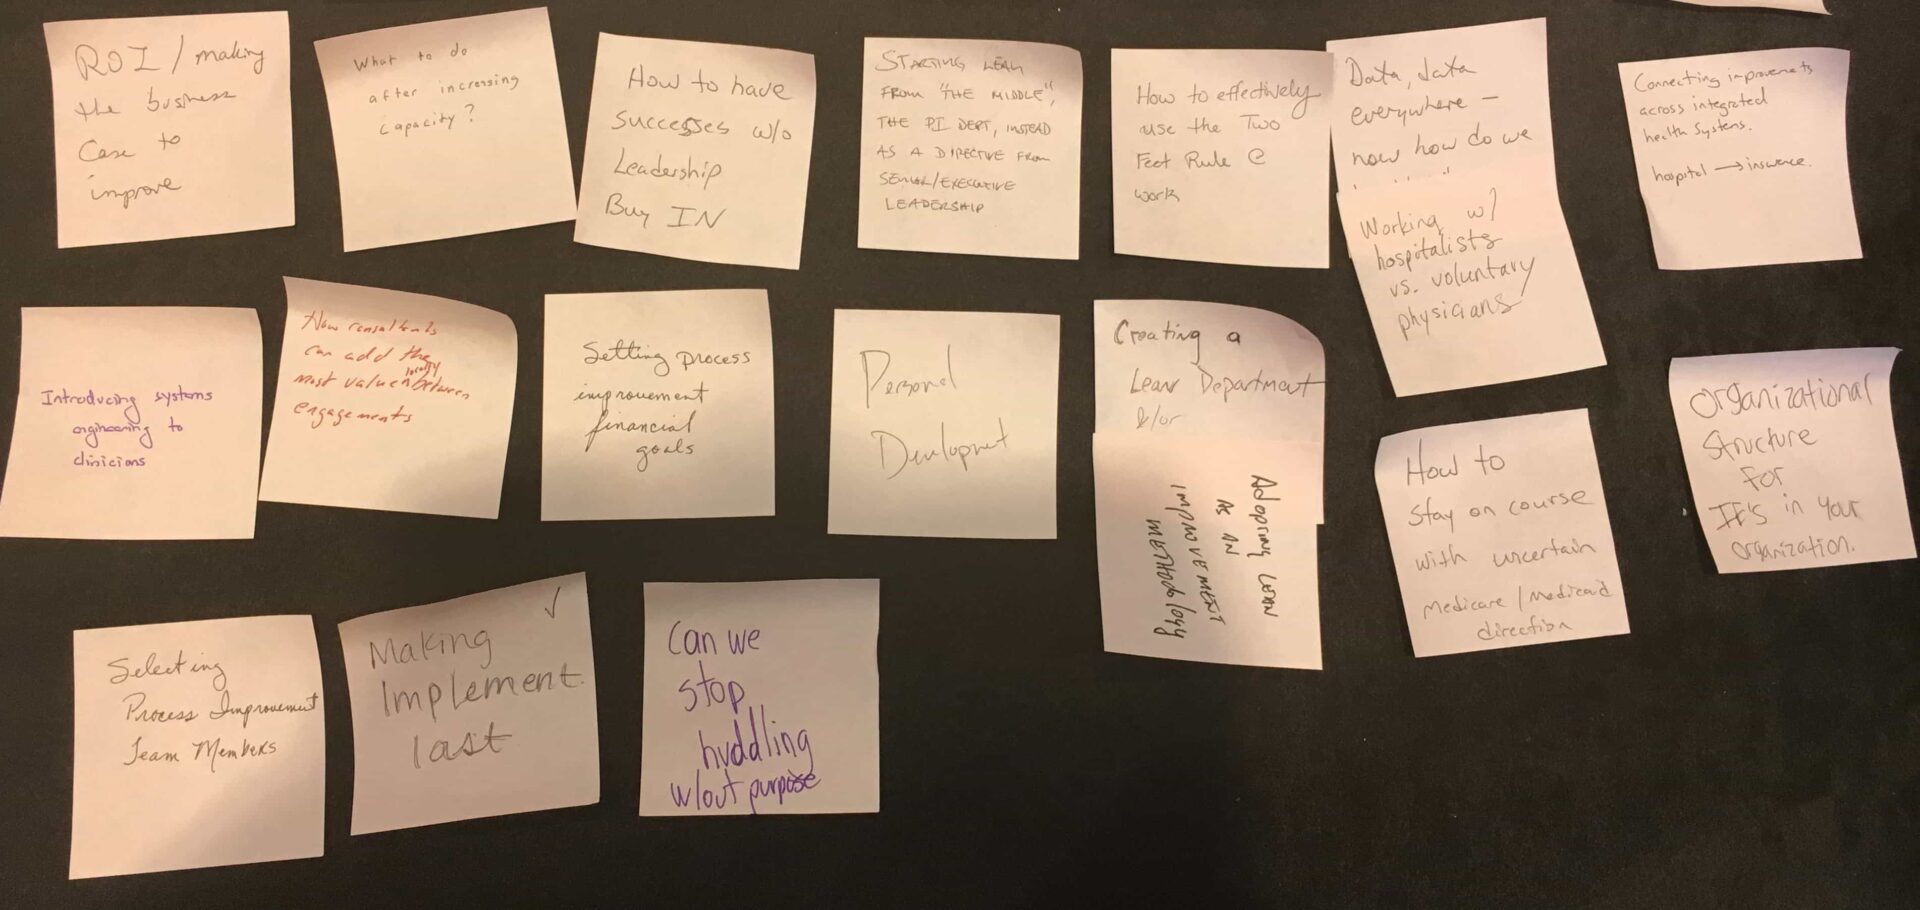 ROI / making
the business
Case to
improve
What to do
after increasing
capacity?
How to have
successes w/o
Leadership
Buy IN
STARTING LEAN
FROM "THE MIDDLE",
THE PI DEPT, INSTEAD
AS A DIRECTIVE FROM
SENIOR/EXECUTIVE
LEADERSHIP
How to effectively
use the Two
Feet Rule @
work
Data, data
everywhere –
now how do we
Working w/
hospitalists
vs. voluntary
physicians
Connecting improvements
across integrated
health systems.
hospital → insurance.
Introducing systems
engineering to
clinicians
How consultants
can add the
most value locally between
engagements
Setting process
improvement
financial
goals
Personal
Development
Creating a
Lean Department
&/or
Adopting LEAN
AS AN
IMPROVEMENT
METHODOLOGY
How to
stay on course
with uncertain
Medicare / Medicaid
direction
Organizational
Structure
For
IE's in your
organization.
Selecting
Process Improvement
Team Members
✓
Making
Implement.
last
Can we
stop
huddling
w/out purpose